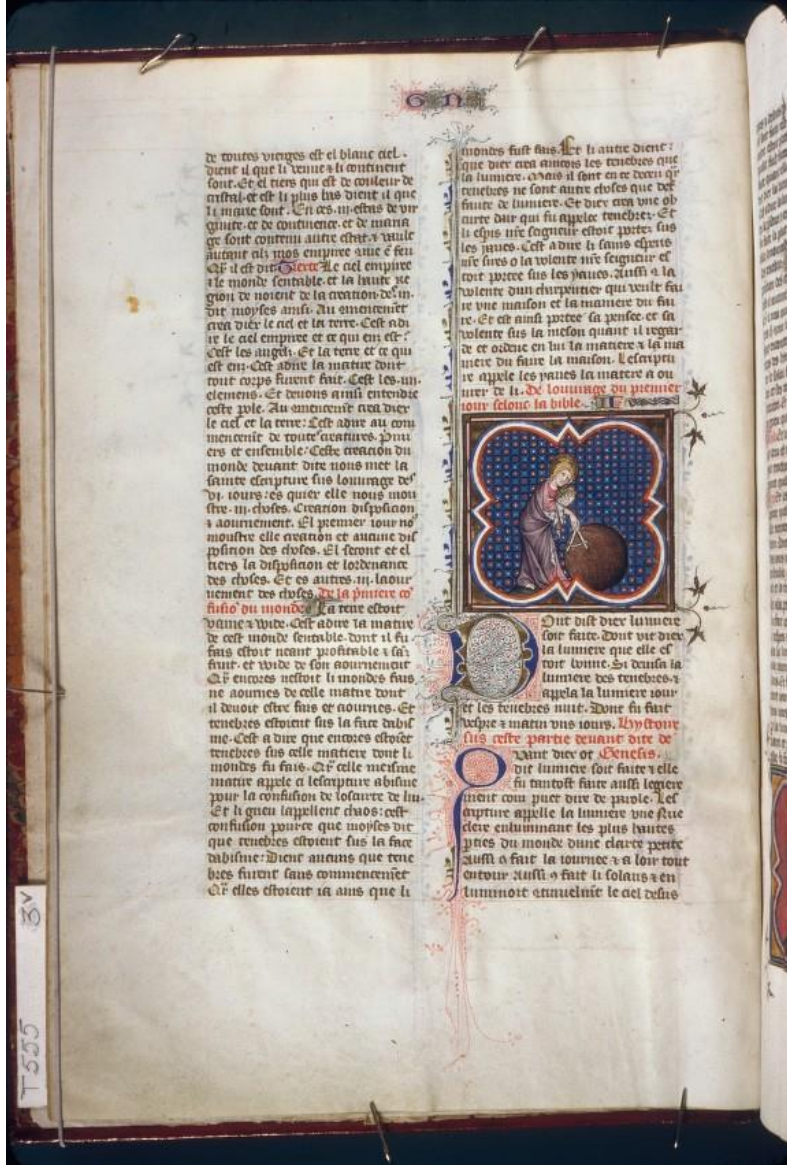 GN
de toutes vierges est el blanc ciel.
dient il que li venue & li continent
sont. Et el tiers qui est de couleur de
cristal. et est li plus bas dient il que
li marie sont. En ces .iii. estas de vir
ginite. et de continence. et de maria
ge sont contenu autre estat. & vault
autant cilz mos empiree que
il est dit. Texte Le ciel empiree
& le monde sentable. et la haute re
gion de noient de la creation
dit moyses ainsi. Au
crea dier le ciel et la terre. Cest adi
re le ciel empiree et ce qui em est:
Cest les angels. Et la terre et ce qui
est em. Cest adire la matire dont
tout corps furent fait. Cest les .iiii.
elemens. Et devons ainsi entendre
ceste pole. Au crea dier
le ciel et la terre: Cest adire au com
mencent de toute creatures. Pmi
ers et ensemble. Ceste creation du
monde devant dite nous met la
sainte escripture sus louvrage des
vi. iours: es quier elle nous mou
stre .iii. choses. Creation disposicion
& aournement. El premier iour no9
moustre elle creation et aucune dis
position des choses. El secont et el
tiers la disposition et lordenance
des choses. Et es autres .iii. laour
nement des choses. De la pmiere co
fusio du monde. La terre estoit
vaine & wide. Cest adire la matire
de cest monde sentable. dont il fu
fais estoit neant profitable & sas
fruit. et wide de son aournement
Qr encores nestoit li mondes fais.
ne aournes de celle matire dont
il devoit estre fais et aournes. Et
tenebres estoient sus la face dabis
me. Cest a dire que encores estoiet
tenebres sus celle matiere dont li
mondes fu fais. Qr celle meisme
matire appele ci lescripture abisme
pour la confusion de loscurte de liu.
Et li grieu lappellent chaos: cest
confusion pource que moyses dit
que tenebres estoient sus la face
dabisme: Dient aucuns que tene
bres furent sans commencemet
Qr elles estoient ia ains que li
mondes fust fais. Et li autre dient:
que dier crea aincois les tenebres que
la lumiere. Mais il sont en ce deceu qr
tenebres ne sont autre choses que def
faute de lumiere. Et dier crea une ob
curte dair qui fu appelee tenebres. Et
li espis nre seigneur estoit portez sus
les yaues. Cest adire li sains esperis
nre sires o la volente nre seigneur es
toit portee sus les yaues. Aussi & la
volente dun charpentier qui veult fai
re vne maison et la maniere du fai
re. Et est ainsi portee sa pensee et sa
volente sus la meson quant il regar
de et ordene en lui la matiere & la ma
niere du faire la maison. Lescriptu
re appele les yaues la matere a ou
urer de li. De louurage du premier
iour selonc la bible. II
Dont dist dier lumiere
soit faite. Dont vit dier
la lumiere que elle es
toit bonne. Si deuisa la
lumiere des tenebres. &
appela la lumiere iour
et les tenebres nuit. Dont fu fait
vespre & matin vns iours. Hystoire
sus ceste partie deuant dite de
Genesis.
Quant dier ot
dit lumiere soit faite & elle
fu tantost faite aussi legiere
ment com puet dire de parole. Les
cripture appelle la lumiere vne nue
clere enluminant les plus hautes
pties du monde dune clarte petite
Aussi 9 fait la iournee & a loir tout
entour Aussi 9 fait li solaus & en
luminoit le ciel desus
T555 3v